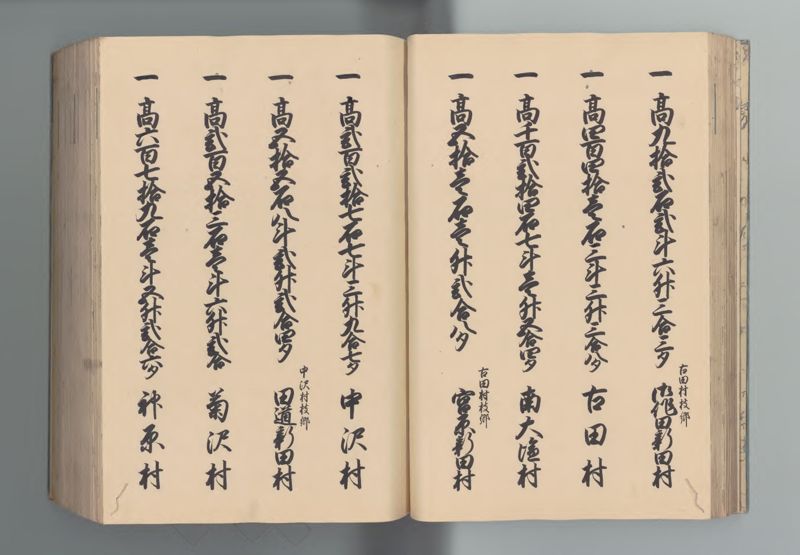 一 高九拾弐石弐斗六升三合三夕 古田村枝郷 作田新田村
一 高四百四拾壱石三斗三升三合八夕 古田村
一 高千百弐拾四石七斗壱升五合四夕 南大塩村
一 高五拾壱石壱升弐合八夕 古田村枝郷 宮原新田村
一 高弐百弐拾七石七斗三升九合七夕 中沢村
一 高五拾五石八斗弐升弐合四夕 中沢村枝郷 田道新田村
一 高弐百五拾三石壱斗六升弐合 菊沢村
一 高六百七拾九石壱斗五升弐合六夕 神原村